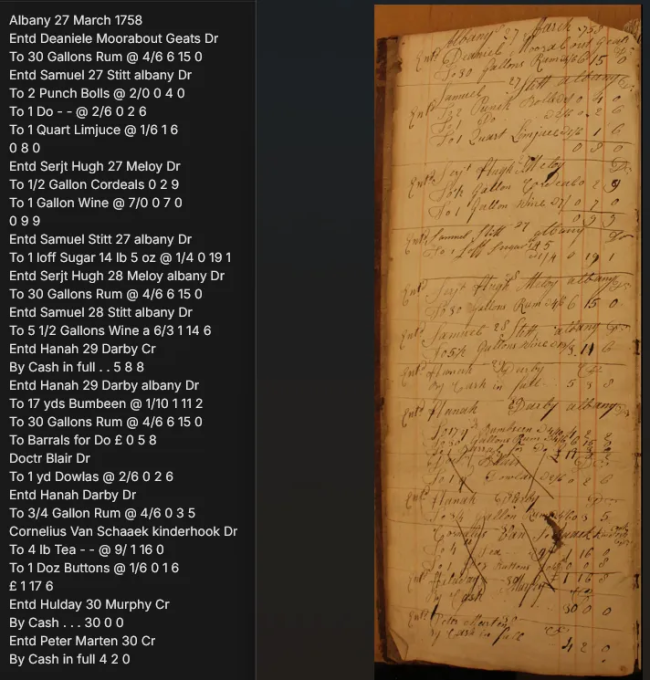 Albany 27 March 1758
Entd Deaniele Moorabout Geats Dr
To 30 Gallons Rum @ 4/6 6 15 0
Entd Samuel 27 Stitt albany Dr
To 2 Punch Bolls @ 2/0 0 4 0
To 1 Do - - @ 2/6 0 2 6
To 1 Quart Limjuce @ 1/6 1 6
0 8 0
Entd Serjt Hugh 27 Meloy Dr
To 1/2 Gallon Cordeals 0 2 9
To 1 Gallon Wine @ 7/0 0 7 0
0 9 9
Entd Samuel Stitt 27 albany Dr
To 1 loff Sugar 14 lb 5 oz @ 1/4 0 19 1
Entd Serjt Hugh 28 Meloy albany Dr
To 30 Gallons Rum @ 4/6 6 15 0
Entd Samuel 28 Stitt albany Dr
To 5 1/2 Gallons Wine a 6/3 1 14 6
Entd Hanah 29 Darby Cr
By Cash in full . . 5 8 8
Entd Hanah 29 Darby albany Dr
To 17 yds Bumbeen @ 1/10 1 11 2
To 30 Gallons Rum @ 4/6 6 15 0
To Barrals for Do £ 0 5 8
Doctr Blair Dr
To 1 yd Dowlas @ 2/6 0 2 6
Entd Hanah Darby Dr
To 3/4 Gallon Rum @ 4/6 0 3 5
Cornelius Van Schaaek kinderhook Dr
To 4 lb Tea - - @ 9/ 1 16 0
To 1 Doz Buttons @ 1/6 0 1 6
£ 1 17 6
Entd Hulday 30 Murphy Cr
By Cash . . . 30 0 0
Entd Peter Marten 30 Cr
By Cash in full 4 2 0
Albany 27 March
Entd Deaniel Moorabout
To 30 Gallons Rum 4/6 6 15 0
Entd Samuel 27 Stitt albany
To 2 Punch Bolls 0 4 0
To 1 Do 2/6 0 2 6
To 1 Quart Limjuce 1 6
0 8 0
Entd Serjt Hugh Meloy Dr
Gallon Cordeals 0 2 9
To 1 Gallon Wine 7/ 0 7 0
0 9 9
Entd Samuel Stitt 27 albany Dr
To 1 loff Sugar
1/4 0 19 1
Entd Serjt Hugh 28 Meloy albany
To 30 Gallons Rum 4/6 6 15 0
Entd Samuel 28 Stitt albany Dr
Gallons Wine
Entd Hanah Darby
By Cash in full 5 8 8
Entd Hanah Darby albany
Gallons Rum
Dowlas 2/6 0 2 6
Entd Hanah Darby
Gallon Rum 5
Cornelius Van
To 4 Tea 9/ 1 16 0
Buttons
30 Murphy
By Cash 30 0 0
Entd Peter Marten
By Cash in full Cr
4 2 0